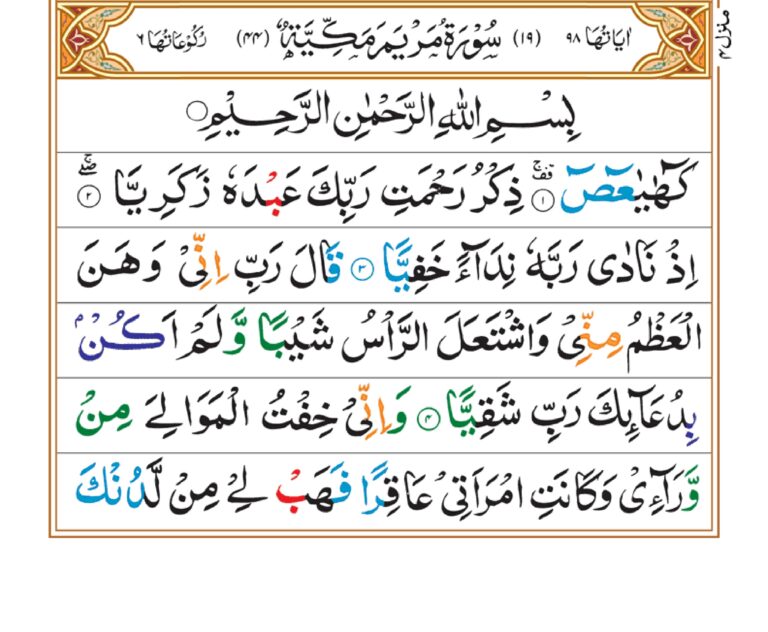 اٰیَاتُهَا ٩٨ (١٩) سُوْرَةُ مَرْیَمَ مَكِّیَّةٌ (٤٤) رُكُوْعَاتُهَا ٦
منزل ٤
بِسْمِ اللّٰهِ الرَّحْمٰنِ الرَّحِیْمِ
كٓهٰیٰعٓصٓ ١ ذِكْرُ رَحْمَتِ رَبِّكَ عَبْدَهٗ زَكَرِیَّا ٢
اِذْ نَادٰى رَبَّهٗ نِدَآءً خَفِیًّا ٣ قَالَ رَبِّ اِنِّیْ وَهَنَ
الْعَظْمُ مِنِّیْ وَاشْتَعَلَ الرَّاْسُ شَیْبًا وَّلَمْ اَكُنْۢ
بِدُعَآىِٕكَ رَبِّ شَقِیًّا ٤ وَاِنِّیْ خِفْتُ الْمَوَالِیَ مِنْ
وَّرَآءِیْ وَكَانَتِ امْرَاَتِیْ عَاقِرًا فَهَبْ لِیْ مِنْ لَّدُنْكَ